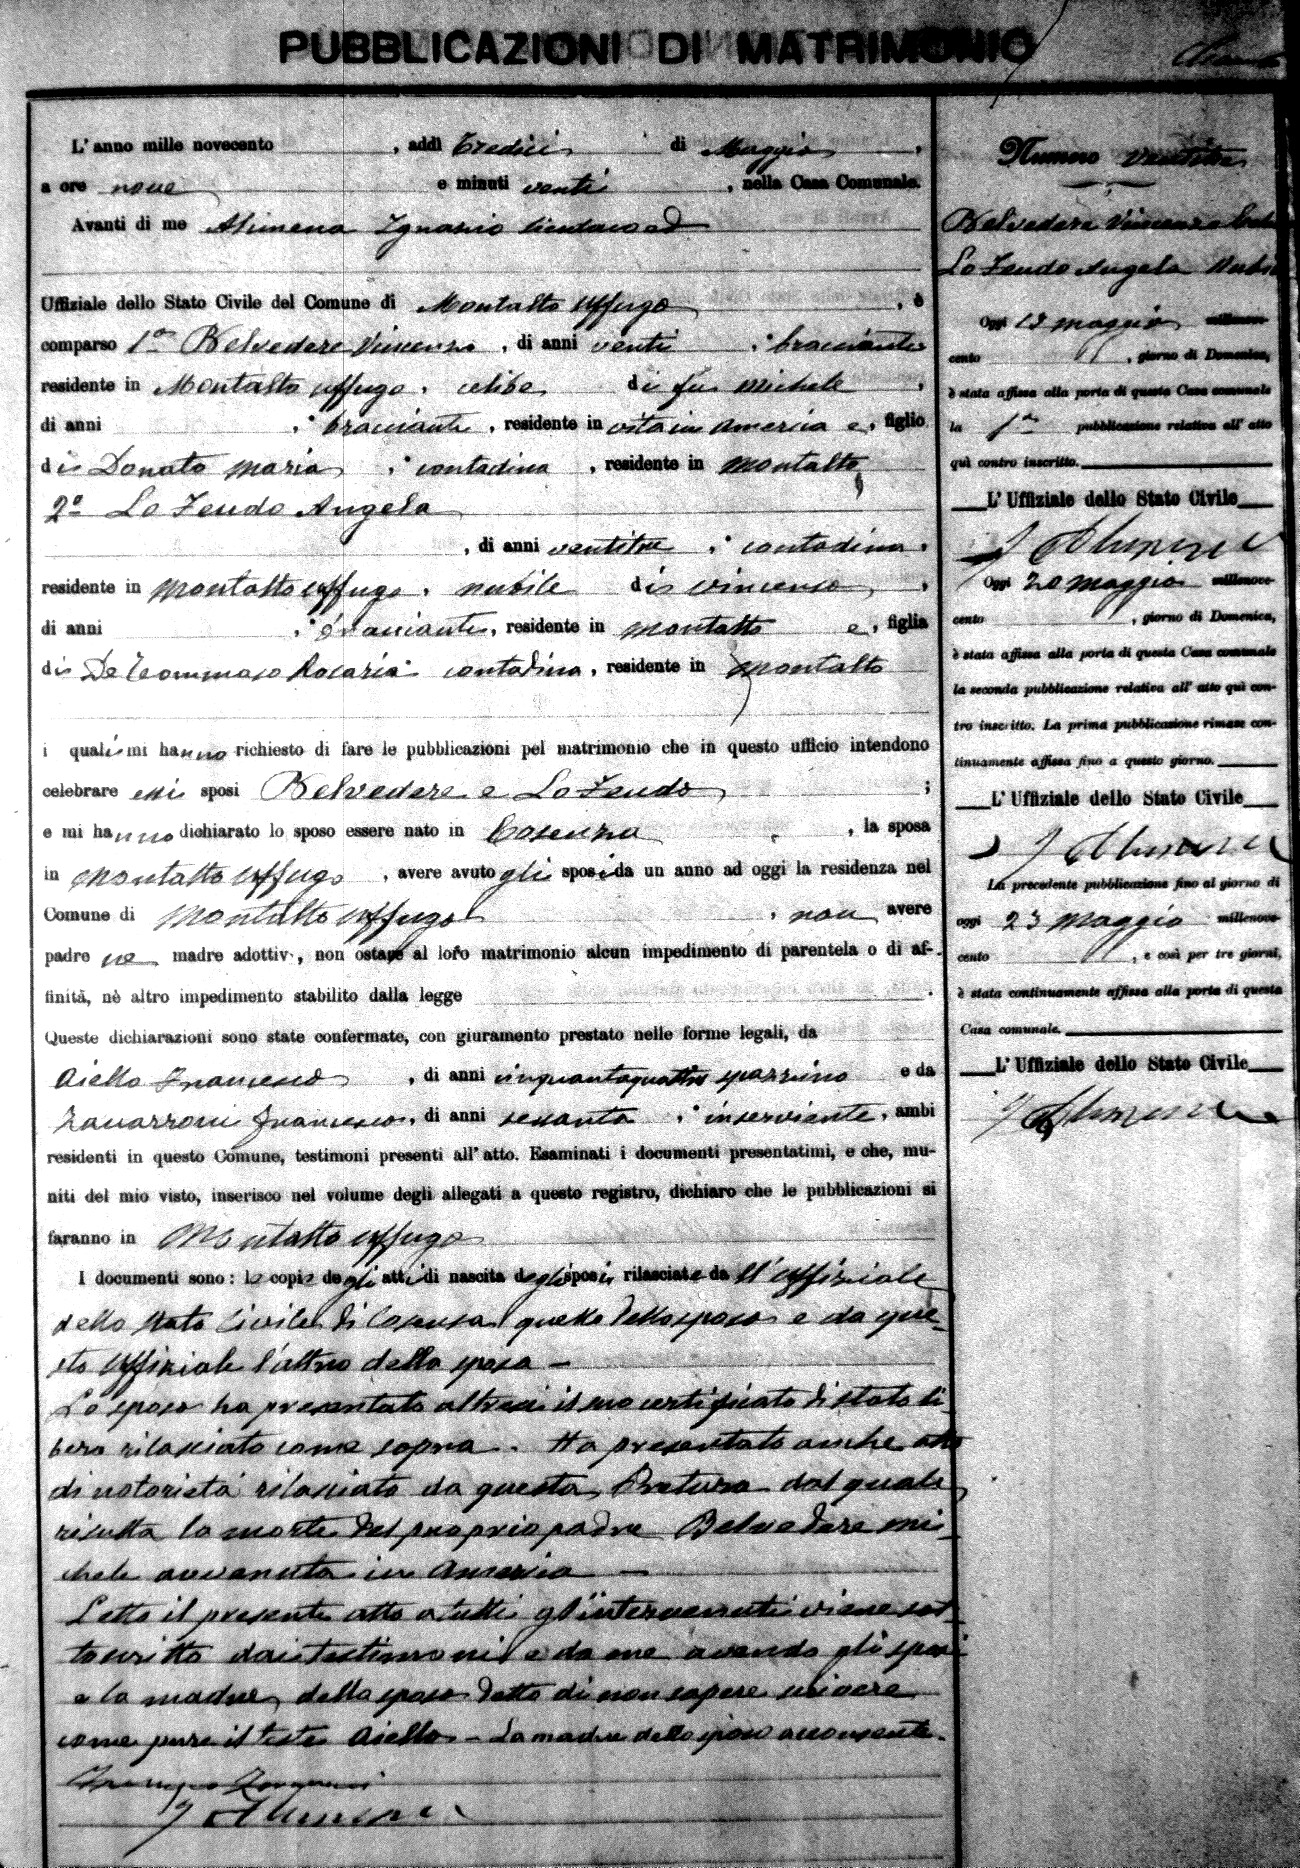 PUBBLICAZIONI DI MATRIMONIO
L'anno mille novecento , addì tredici di Maggio ,
a ore nove e minuti venti , nella Casa Comunale.
Avanti di me Alimena Ignazio Sindaco ed
Uffiziale dello Stato Civile del Comune di Montalto Uffugo , è
comparso 1° Belvedere Vincenzo , di anni venti , bracciante
residente in Montalto Uffugo , celibe di fu Michele ,
di anni , bracciante , residente in vita in America e , figlio
di Donato Maria , contadina , residente in Montalto
2° Lo Feudo Angela
, di anni ventitre , contadina ,
residente in Montalto Uffugo , nubile di Vincenzo ,
di anni , bracciante , residente in Montalto e , figlia
di De Tommaso Rosaria contadina , residente in Montalto
i quali mi hanno richiesto di fare le pubblicazioni pel matrimonio che in questo ufficio intendono
celebrare essi sposi Belvedere e Lo Feudo ;
e mi hanno dichiarato lo sposo essere nato in Cosenza , la sposa
in Montalto Uffugo , avere avuto gli sposi da un anno ad oggi la residenza nel
Comune di Montalto Uffugo , non avere
padre ne madre adottiv , non ostare al loro matrimonio alcun impedimento di parentela o di af-
finità, nè altro impedimento stabilito dalla legge .
Queste dichiarazioni sono state confermate, con giuramento prestato nelle forme legali, da
Aiello Francesco , di anni cinquantaquattro spazzino e da
Zavarroni Francesco , di anni sessanta , inserviente , ambi
residenti in questo Comune, testimoni presenti all'atto. Esaminati i documenti presentatimi, e che, mu-
niti del mio visto, inserisco nel volume degli allegati a questo registro, dichiaro che le pubblicazioni si
faranno in Montalto Uffugo
I documenti sono: le copie degli atti di nascita degli sposi rilasciate da ll'uffiziale
dello stato Civile di Cosenza quella dello sposo e da que-
sto uffiziale l'altro della sposa -
Lo sposo ha presentato altresì il suo certificato di stato li-
bero rilasciato come sopra. Ha presentato anche atto
di notorietà rilasciato da questa Pretura dal quale
risulta la morte del proprio padre Belvedere Mi-
chele avvenuta in America -
Letto il presente atto a tutti gl'intervenuti viene sot-
toscritto dai testimoni e da me avendo gli sposi
e la madre dello sposo detto di non sapere scrivere
come pure il teste Aiello - La madre dello sposo acconsente.
I Alimena
Numero ventitre
Belvedere Vincenzo
Lo Feudo Angela Nubile
Oggi 13 maggio millenove-
cento , giorno di Domenica,
è stata affissa alla porta di questa Casa comunale
la 1a pubblicazione relativa all'atto
quì contro inscritto.
L'Uffiziale dello Stato Civile
I Alimena
Oggi 20 maggio millenove-
cento , giorno di Domenica,
è stata affissa alla porta di questa Casa comunale
la seconda pubblicazione relativa all'atto quì con-
tro inscritto. La prima pubblicazione rimase con-
tinuamente affissa fino a questo giorno.
L'Uffiziale dello Stato Civile
I Alimena
La precedente pubblicazione fino al giorno di
oggi 23 maggio millenove-
cento , e così per tre giorni,
è stata continuamente affissa alla porta di questa
Casa comunale.
L'Uffiziale dello Stato Civile
I Alimena